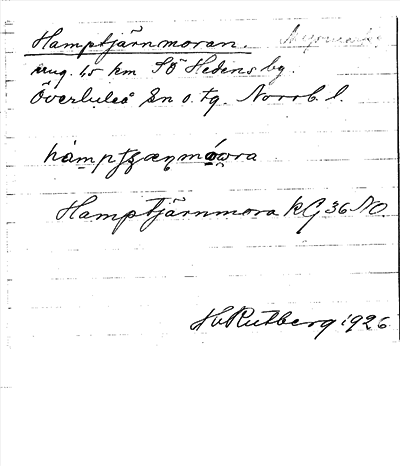 Hamptjärnmoran.
ung. 15 km SÖ Hedens by.
Överluleå Sn o. tg. Norrb. l.
Hamptjärnmora kG 36 NO
HvRutberg 1926